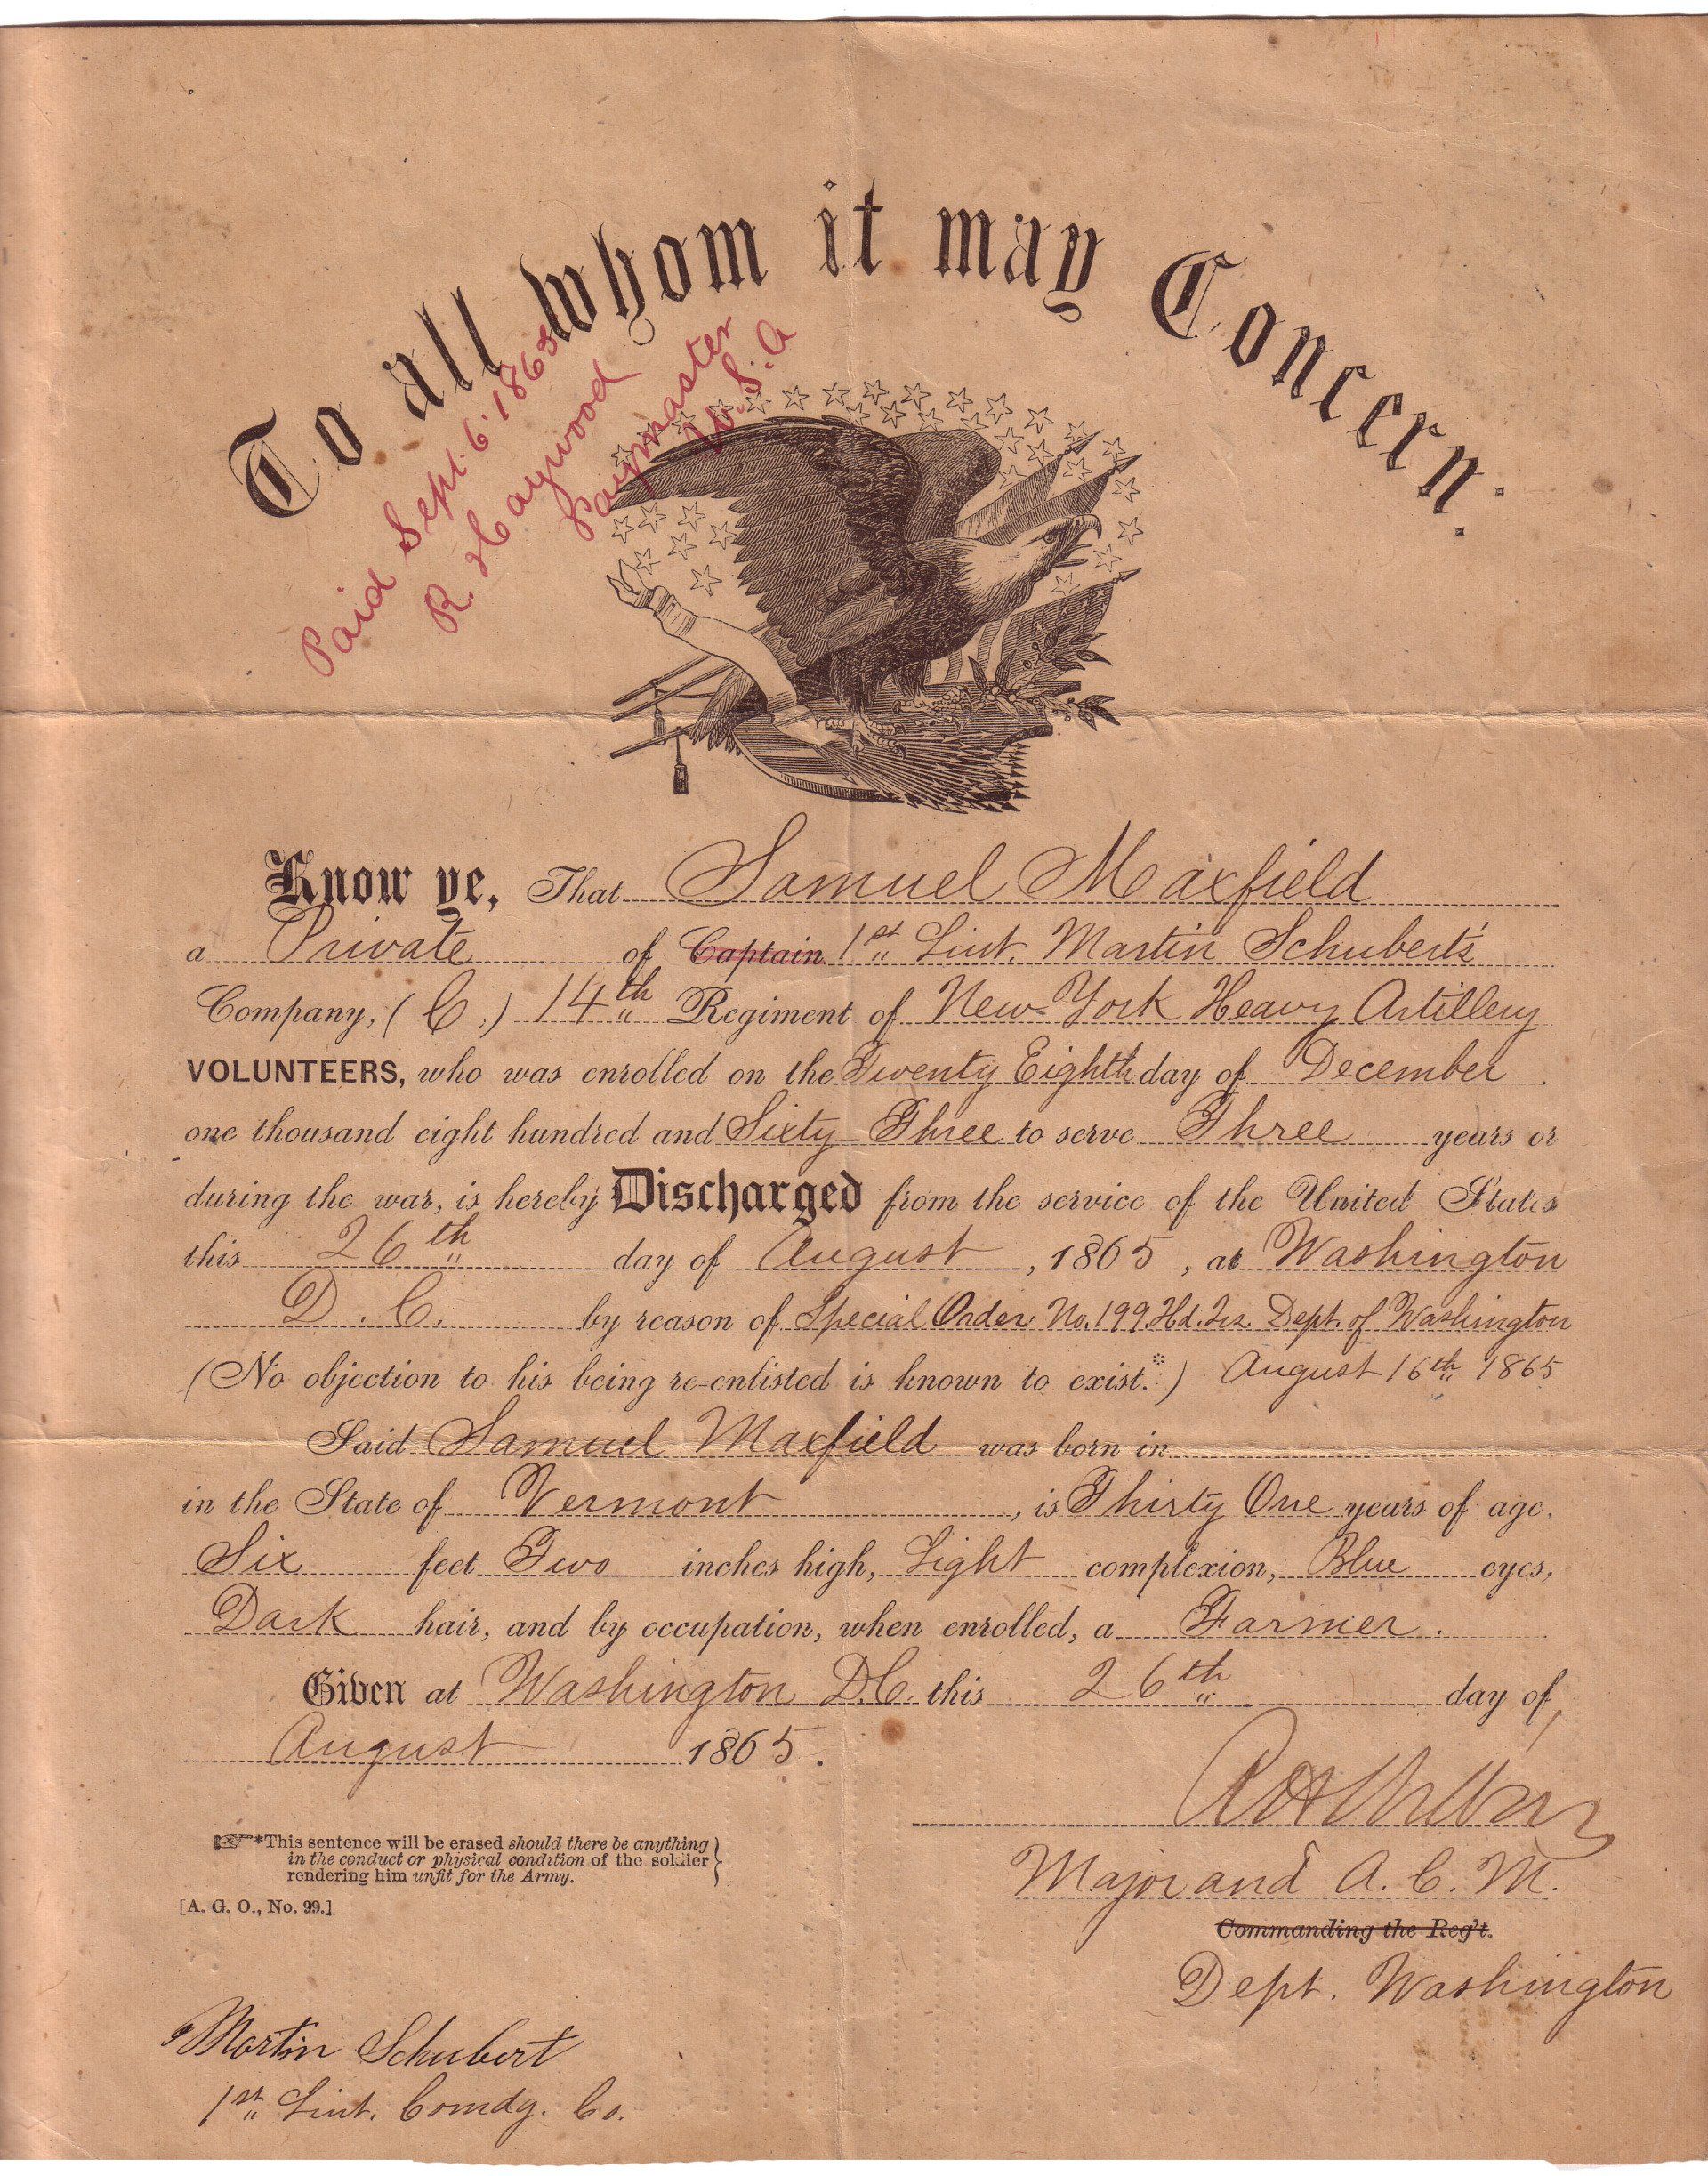 To all whom it may Concern.
Paid Sept. 6. 1865
R. Haywood
Paymaster
U.S.A
Know ye, That Samuel Maxfield
a Private of Captain 1st Lint. Martin Schubert's
Company, (C.) 14th Regiment of New-York Heavy Artillery
VOLUNTEERS, who was enrolled on the Twenty Eighth day of December
one thousand eight hundred and Sixty-Three to serve Three years or
during the war, is hereby Discharged from the service of the United States
this 26th day of August, 1865, at Washington
D.C. by reason of Special Order No. 199 Hd. Qrs. Dept. of Washington
(No objection to his being re-enlisted is known to exist.*) August 16th 1865
Said Samuel Maxfield was born in
in the State of Vermont, is Thirty One years of age,
Six feet Two inches high, Light complexion, Blue eyes,
Dark hair, and by occupation, when enrolled, a Farmer.
Given at Washington D.C. this 26th day of
August 1865.
*This sentence will be erased should there be anything
in the conduct or physical condition of the soldier
rendering him unfit for the Army.
[A. G. O., No. 99.]
Major and A. C. M.
Commanding the Reg't.
Dept. Washington
Martin Schubert
1st Lint. Comdg. Co.